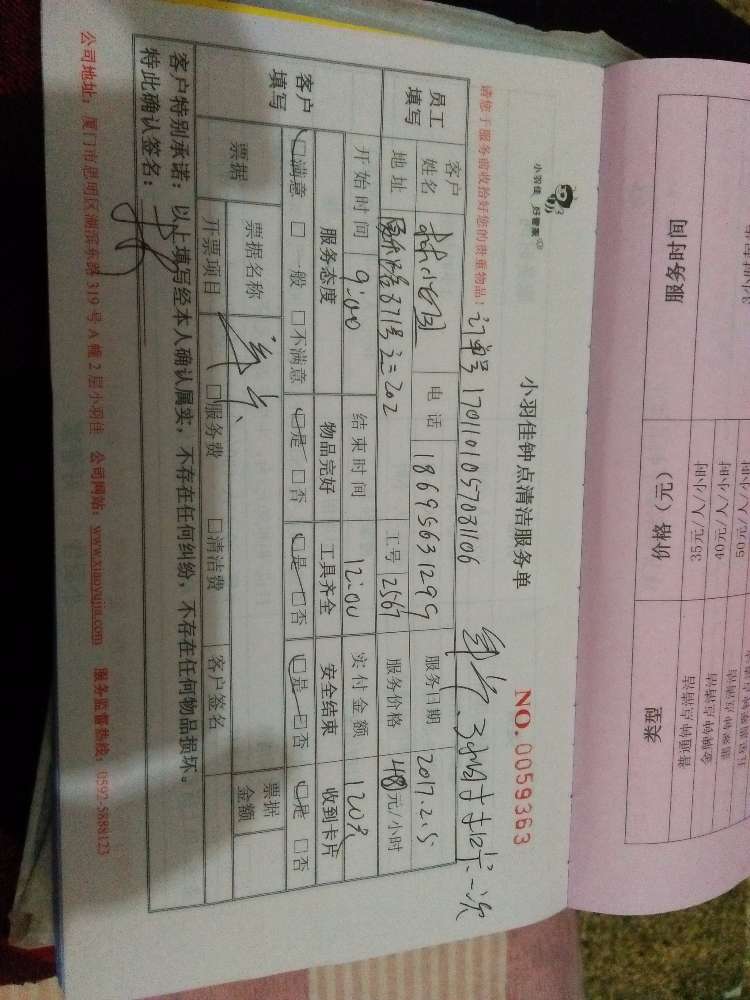 小羽佳 好管家
小羽佳钟点清洁服务单
NO.0059363
请您于服务前收拾好您的贵重物品！
订单号170110105708 1106
3小时卡 扣卡一次
员工填写
客户姓名
电话
18695631299
服务日期
2017.2.5
地址
871号之二202
工号
2567
服务价格
48元/小时
开始时间
9:00
结束时间
12:00
实付金额
120元
客户填写
服务态度
物品完好
工具齐全
安全结束
收到卡片
□满意 □一般 □不满意
□是 □否
□是 □否
□是 □否
□是 □否
票据
票据名称
票据金额
开票项目
□服务费 □清洁费
客户签名
客户特别承诺：以上填写经本人确认属实，不存在任何纠纷，不存在任何物品损坏。
特此确认签名：
公司地址：厦门市思明区湖滨东路319号A幢2层小羽佳 公司网站：www.xiaoyujia.com 服务监督热线：0592-5888123
服务时间
价格（元）
类型
35元/人/小时
普通钟点清洁
40元/人/小时
金牌钟点清洁
50元/人/小时